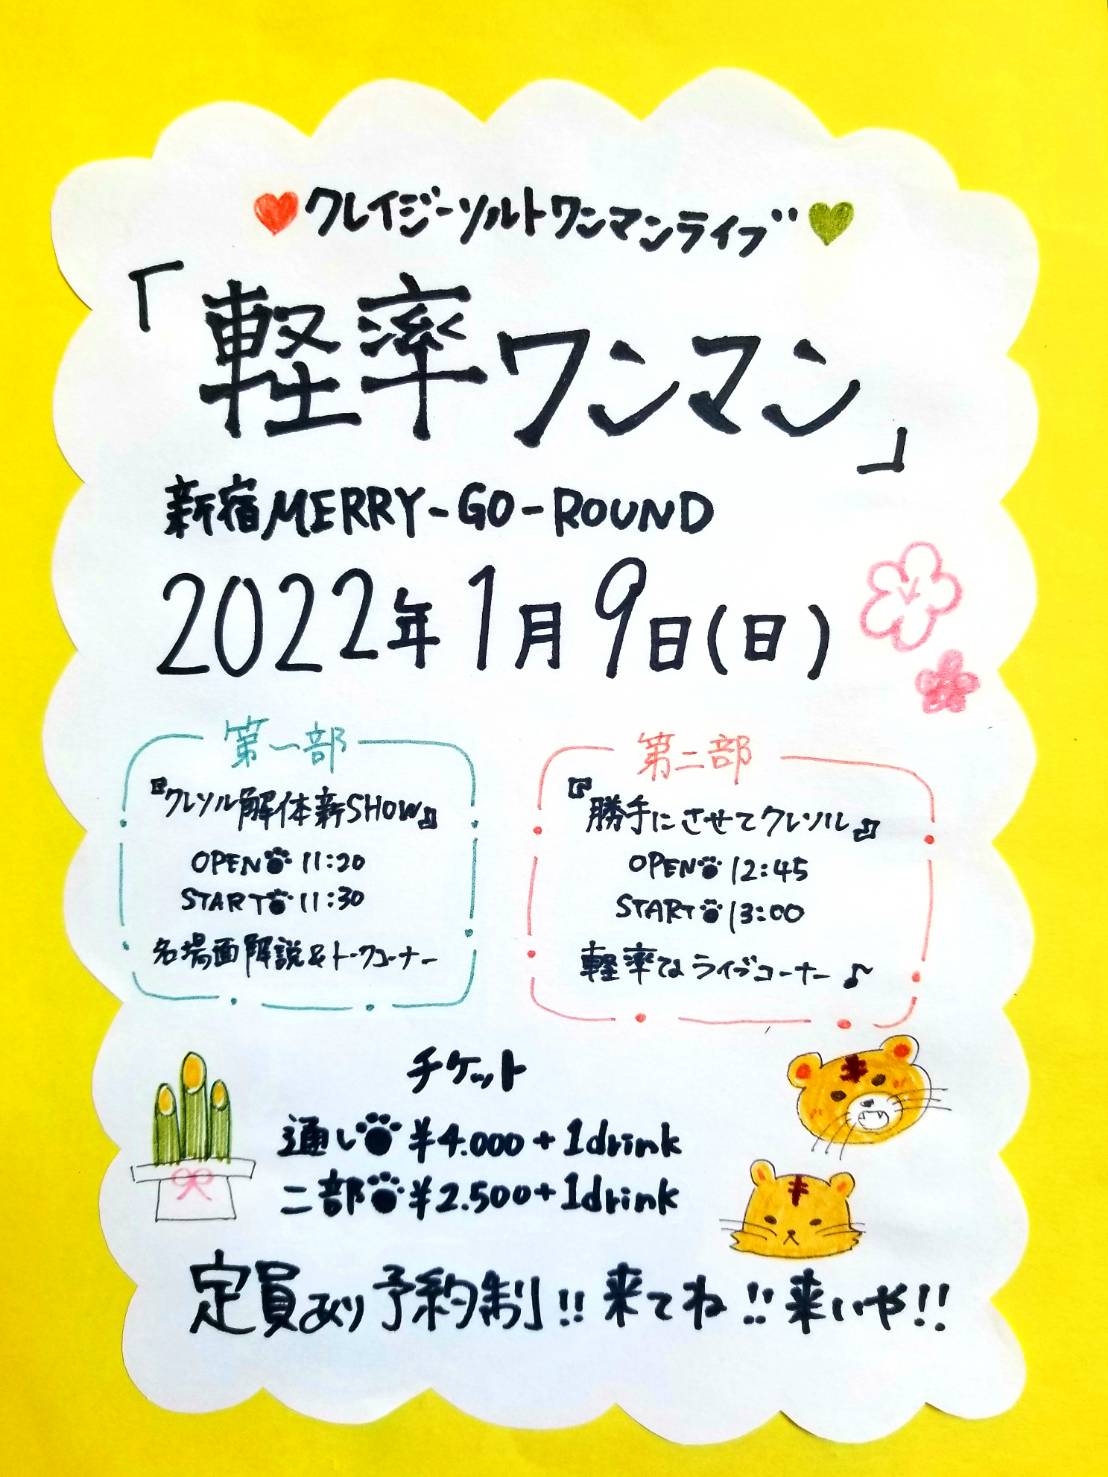 クレイジーソルトワンマンライブ
「軽率ワンマン」
新宿MERRY-GO-ROUND
2022年1月9日(日)
第一部
『クレソル解体新SHOW』
OPEN 11:20
START 11:30
名場面解説&トークコーナー
第二部
『勝手にさせてクレソル』
OPEN 12:45
START 13:00
軽率なライブコーナー♪
チケット
通し ¥4.000+1drink
二部 ¥2.500+1drink
定員あり予約制!! 来てね!! 来いや!!